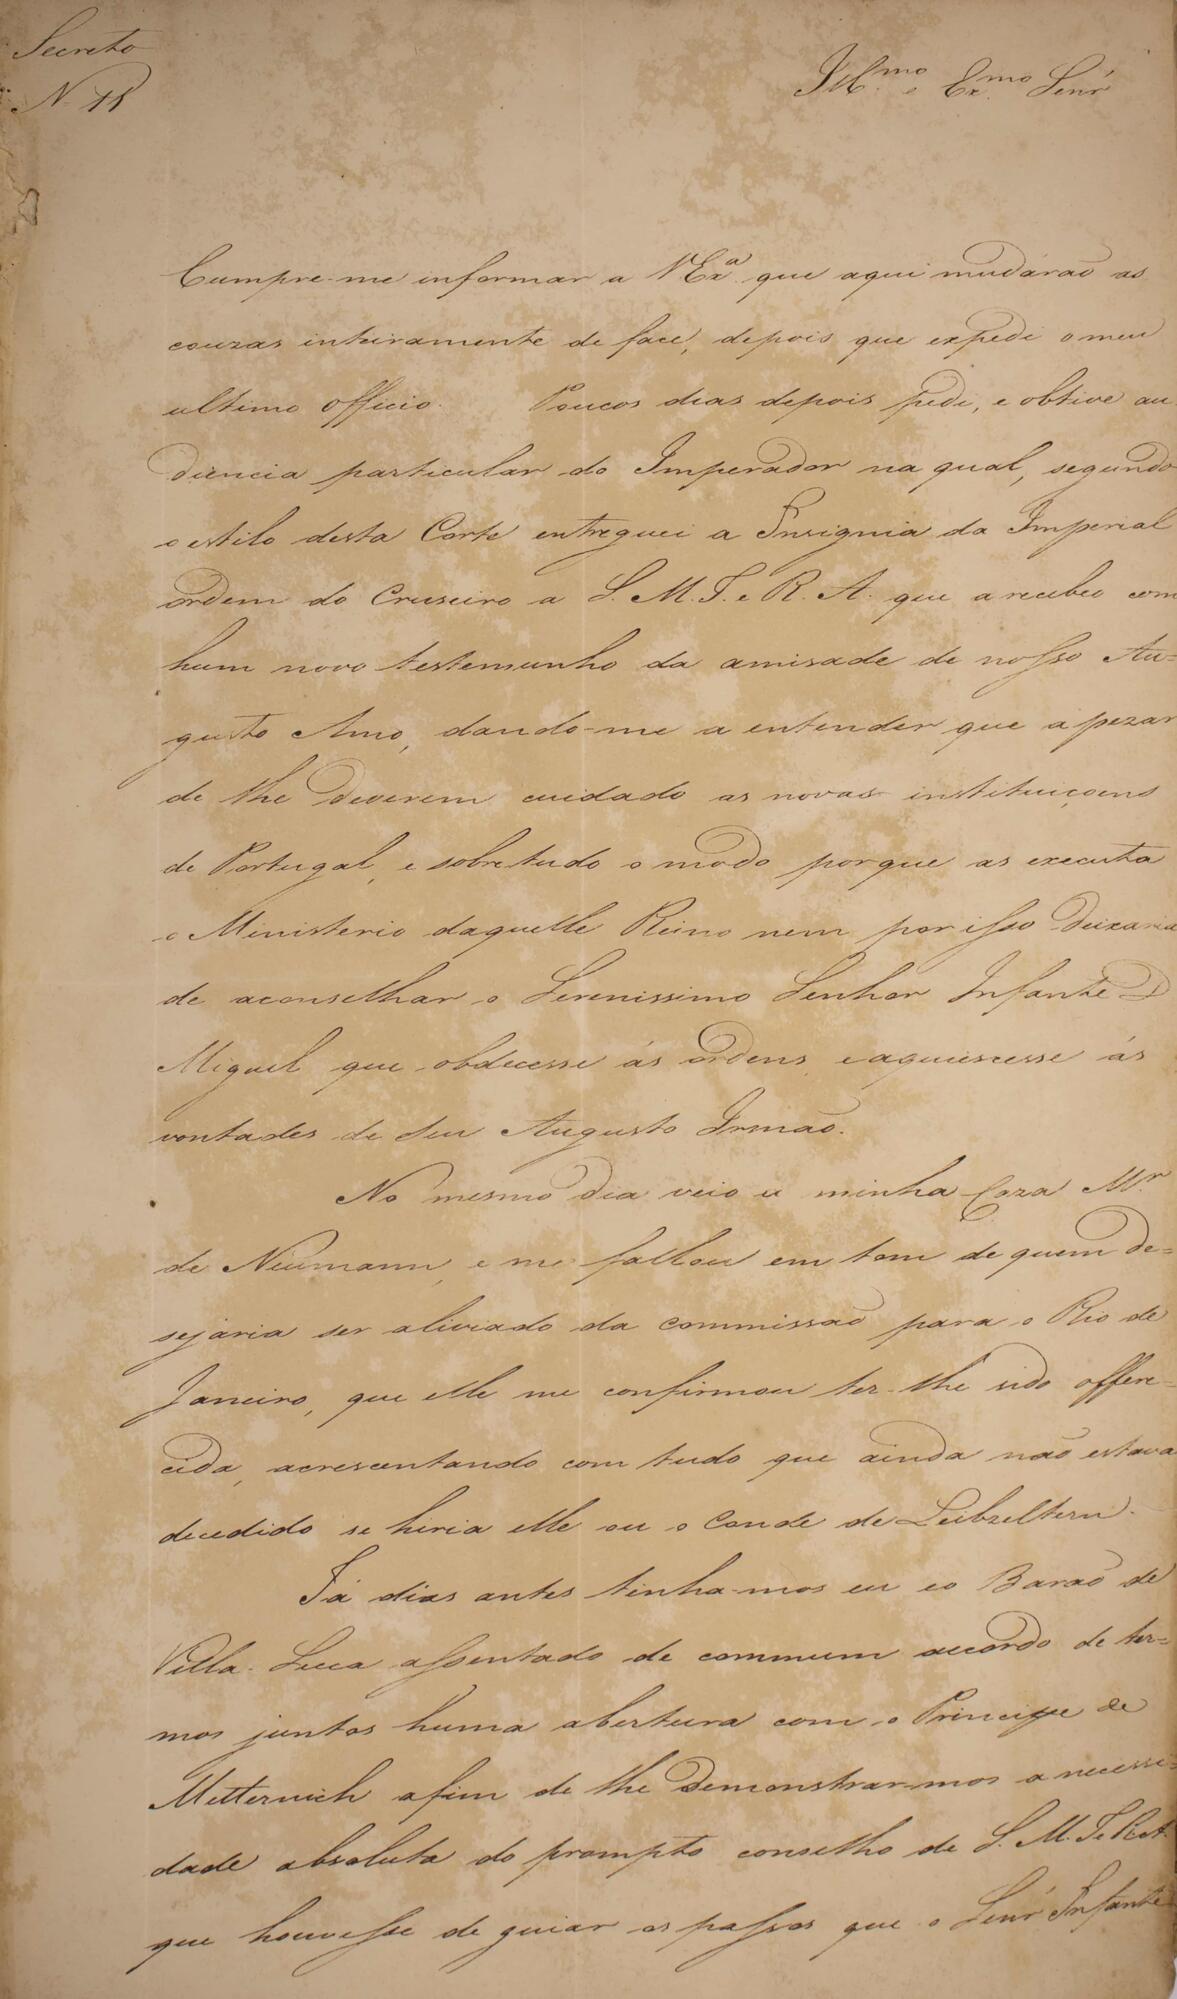 Secreto
N. 18
Ill.mo e Ex.mo Senr
Cumpre-me informar a V Ex.a que aqui mudárão as
couzas inteiramente de face, depois que expedi o meu
ultimo officio. Poucos dias depois pedi, e obtive au
diencia particular do Imperador na qual, segundo
o estilo desta Corte entreguei a Insignia da Imperial
ordem do Cruseiro a S. M. I. e R. A. que a recebeo com
hum novo testemunho da amisade de nosso Au=
gusto Amo, dando-me a entender que a pezar
de lhe deverem cuidado as novas instituiçoens
de Portugal, e sobretudo o modo porque as executa
o Ministerio daquelle Reino nem por isso deixaria
de aconselhar o Serenissimo Senhor Infante D
Miguel que obdecesse ás ordens, e aquiescesse ás
vontades de seu Augusto Irmão.
No mesmo dia veio a minha Caza Mr
de Neumann, e me fallou em tom de quem de=
sejaria ser aliviado da commissão para o Rio de
Janeiro, que elle me confirmou ter-lhe sido offere=
cida, acrescentando com tudo que ainda não estava
decedido se hiria elle ou o Conde de Lebzeltern.
Já dias antes tinha-mos eu e o Barão de
Villa-Secca assentado de commum accordo de ter=
mos juntos huma abertura com o Principe de
Metternich afim de lhe demonstrar-mos a necessi=
dade absoluta do prompto conselho de S. M. I. e R. A.
que houvesse de guiar os passos que o Senr Infante